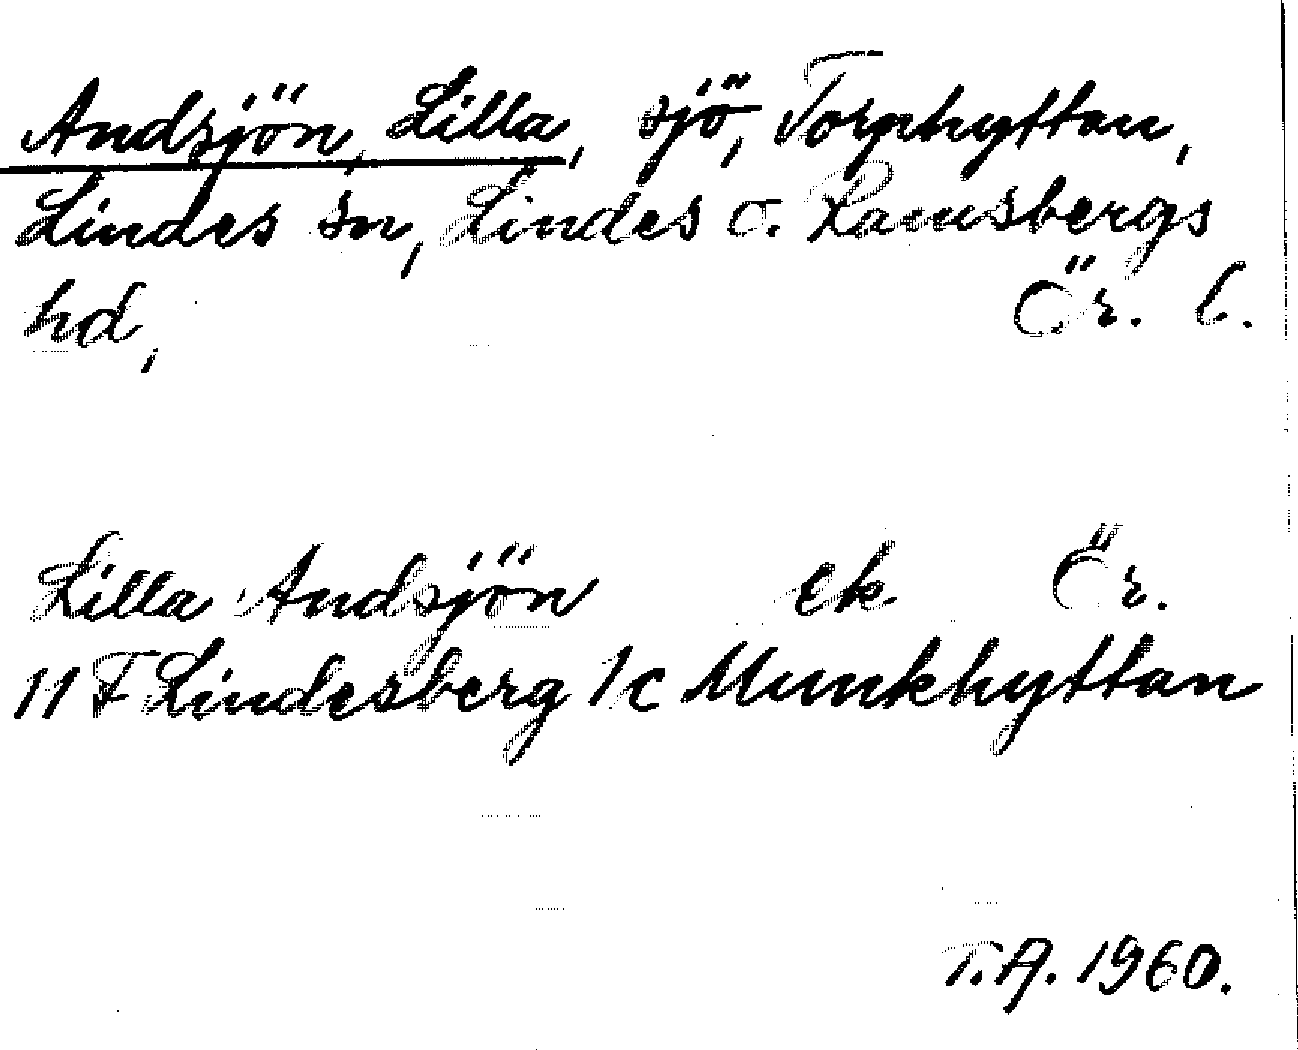 Andsjön, Lilla, sjö, Torphyttan,
Lindes sn, Lindes o. Ramsbergs
hd, Ör. l.
Lilla Andsjön ek. Ör.
11 F Lindesberg 1c Munkhyttan
T.A. 1960.